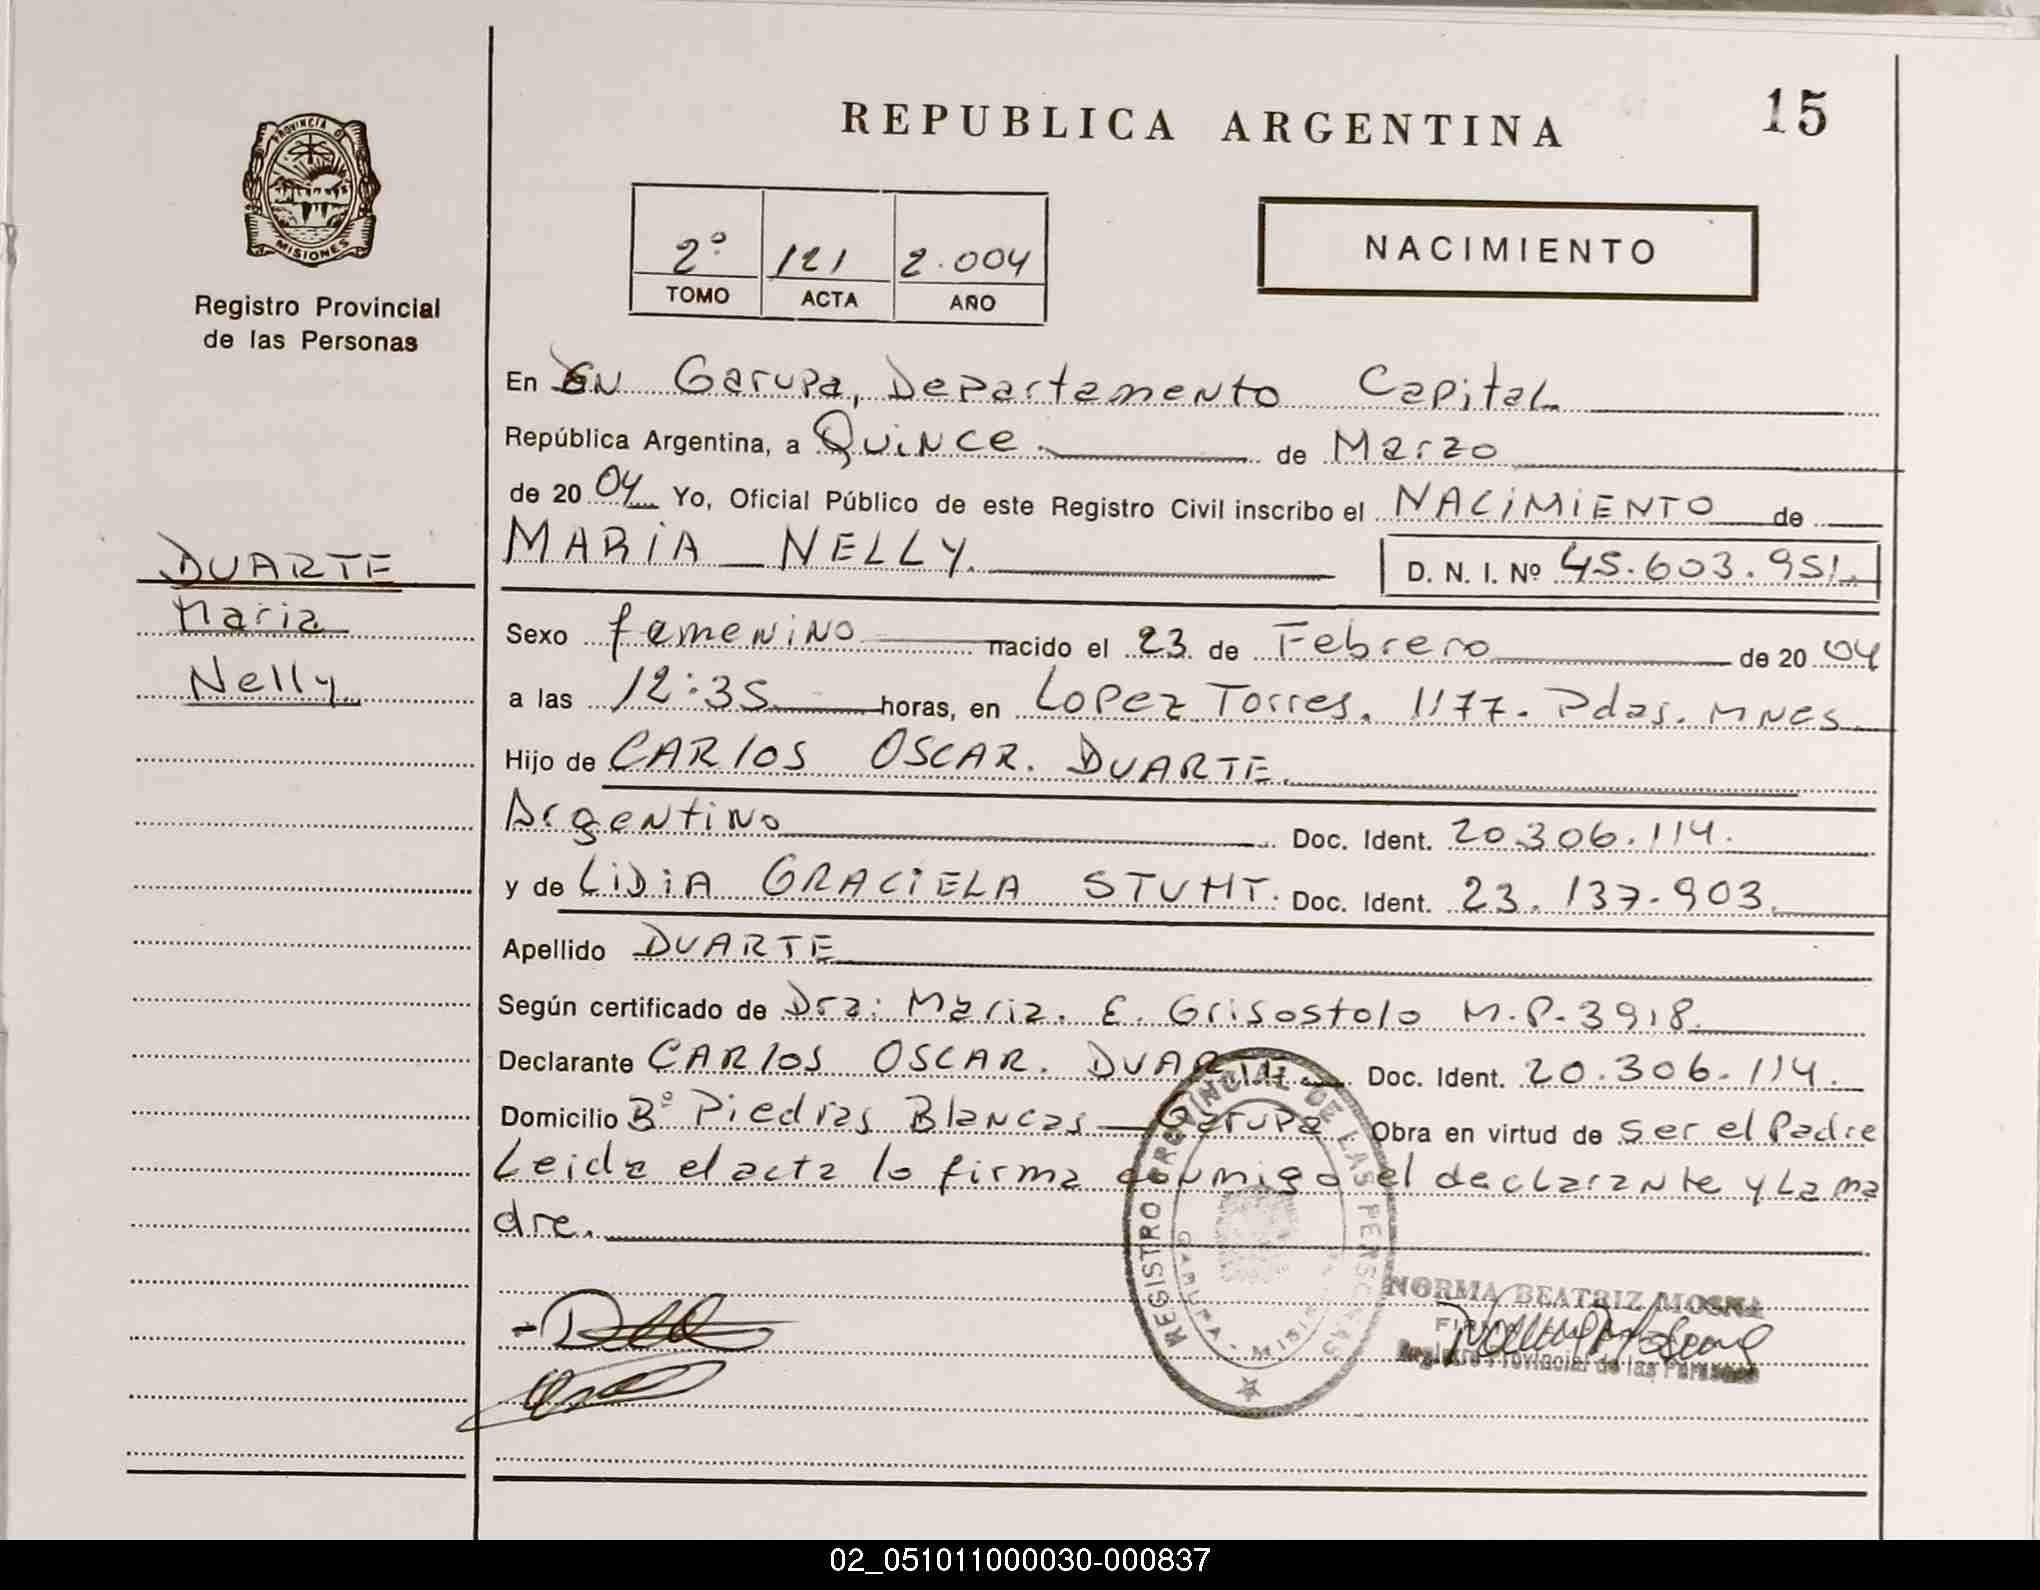 REPUBLICA ARGENTINA
15
PROVINCIA D
MISIONES
Registro Provincial
de las Personas
2º 121 2.004
TOMO ACTA AÑO
NACIMIENTO
En EN Garupa, Departamento Capital
República Argentina, a Quince de Marzo
de 20 04 Yo, Oficial Público de este Registro Civil inscribo el NACIMIENTO de
MARIA NELLY. D. N. I. Nº 45.603.951.
DUARTE
Maria
Nelly.
Sexo femenino nacido el 23 de Febrero de 20 04
a las 12:35 horas, en Lopez Torres. 1177. Pdas. MNES.
Hijo de CARlOS OSCAR. DUARTE.
Argentino Doc. Ident. 20.306.114.
y de LIDIA GRACIELA STUHT. Doc. Ident. 23.137.903.
Apellido DUARTE
Según certificado de Dra: Maria. E. Grisostolo M.P. 3918.
Declarante CARlOS OSCAR. DUARTE. Doc. Ident. 20.306.114.
Domicilio Bº Piedras Blancas - Garupa Obra en virtud de ser el Padre
Leida el acta lo firma conmigo el declarante y La ma
dre.
REGISTRO PROVINCIAL DE LAS PERSONAS
GARUPA - MISIONES
NORMA BEATRIZ MOSNA
Registro Provincial de las Personas
02_051011000030-000837